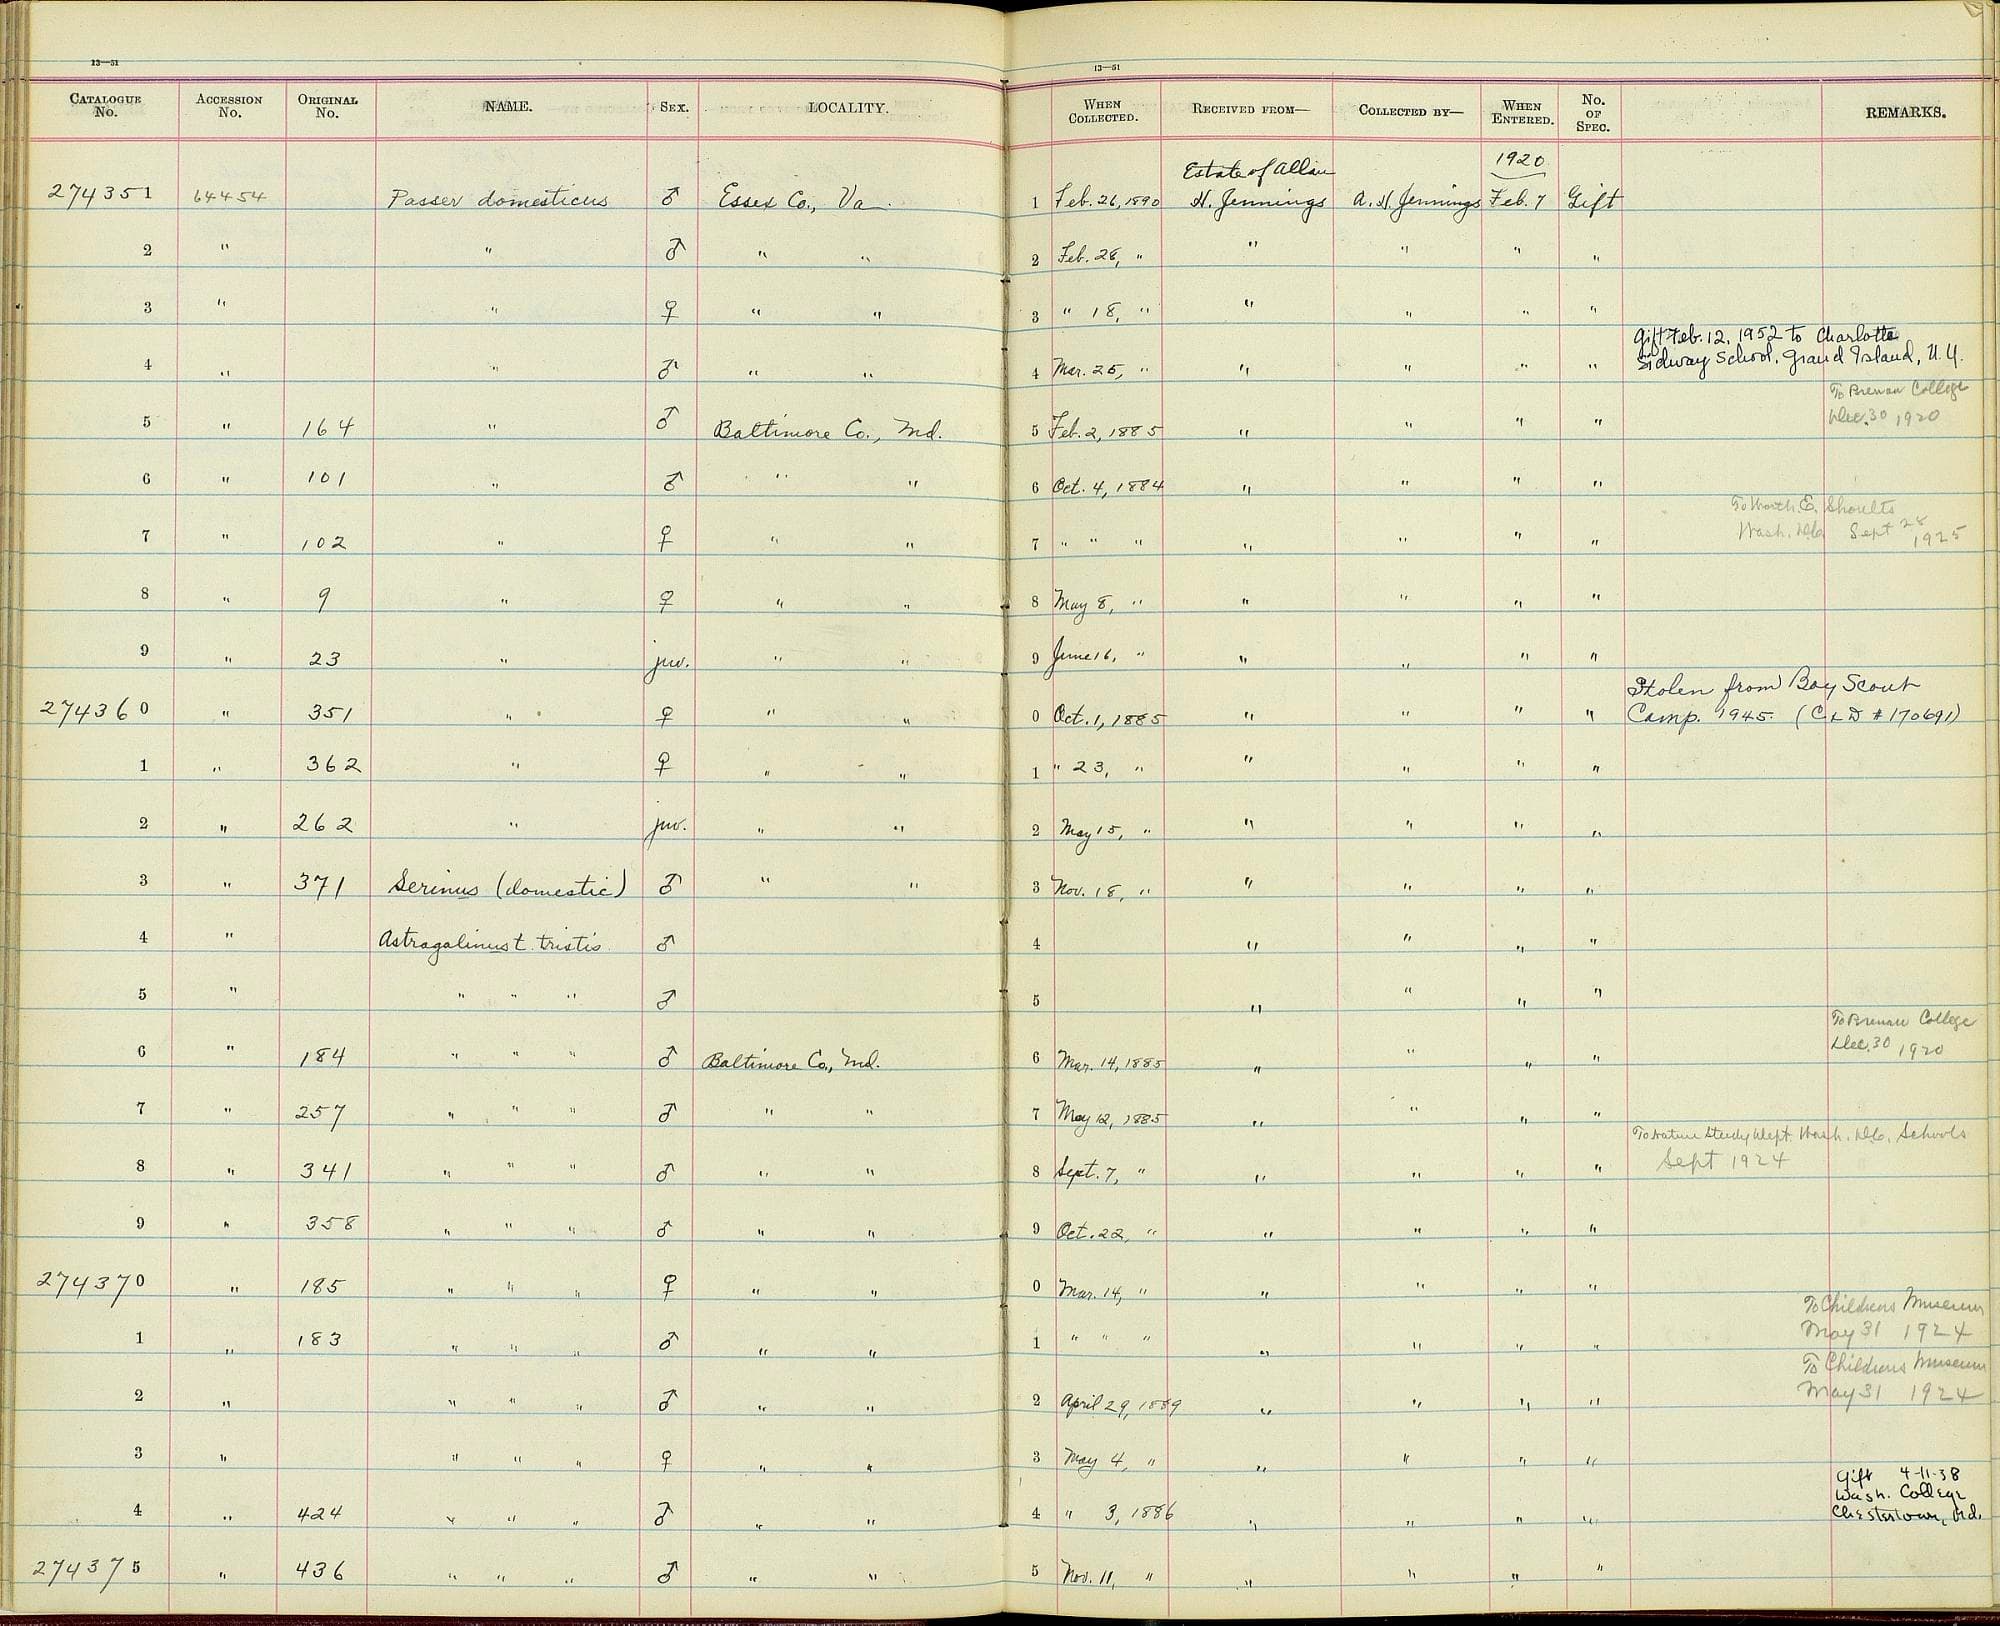 13—51
13—51
CATALOGUE No. ACCESSION No. ORIGINAL No. NAME. SEX. LOCALITY. WHEN COLLECTED. RECEIVED FROM— COLLECTED BY— WHEN ENTERED. No. OF SPEC. REMARKS.
Estate of Allan 1920
274351 64454 Passer domesticus ♂ Essex Co., Va. 1 Feb. 26, 1890 H. Jennings A. H. Jennings Feb. 7 Gift
2 " " ♂ " " 2 Feb. 28, " " " " "
3 " " ♀ " " 3 " 18, " " " " "
Gift Feb. 12, 1952 to Charlotte
4 " " ♂ " " 4 Mar. 25, " " " " " Sidway School, Grand Island, N.Y.
To Brenau College
5 " 164 " ♂ Baltimore Co., Md. 5 Feb. 2, 1885 " " " " Dec. 30 1920
6 " 101 " ♂ " " 6 Oct. 4, 1884 " " " "
To Worth E. Shoults
7 " 102 " ♀ " " 7 " " " " " " " Wash. D.C. Sept 28 1925
8 " 9 " ♀ " " 8 May 8, " " " " "
9 " 23 " juv. " " 9 June 16, " " " " "
Stolen from Boy Scout
274360 " 351 " ♀ " " 0 Oct. 1, 1885 " " " " Camp. 1945. (C & D # 170691)
1 " 362 " ♀ " " 1 " 23, " " " " "
2 " 262 " juv. " " 2 May 15, " " " " "
3 " 371 Serinus (domestic) ♂ " " 3 Nov. 18, " " " " "
4 " Astragalinus t. tristis ♂ 4 " " " "
5 " " " " ♂ 5 " " " "
To Brenau College
6 " 184 " " " ♂ Baltimore Co., Md. 6 Mar. 14, 1885 " " " " Dec. 30 1920
7 " 257 " " " ♂ " " 7 May 12, 1885 " " " "
To Nature Study Dept. Wash. D.C. Schools
8 " 341 " " " ♂ " " 8 Sept. 7, " " " " " Sept 1924
9 " 358 " " " ♂ " " 9 Oct. 22, " " " " "
274370 " 185 " " " ♀ " " 0 Mar. 14, " " " " "
To Childrens Museum
1 " 183 " " " ♂ " " 1 " " " " " " " May 31 1924
To Childrens Museum
2 " " " " ♂ " " 2 April 29, 1889 " " " " May 31 1924
3 " " " " ♀ " " 3 May 4, " " " " "
Gift 4-11-38
Wash. College
4 " 424 " " " ♂ " " 4 " 3, 1886 " " " " Chestertown, Md.
274375 " 436 " " " ♂ " " 5 Nov. 11, " " " " "